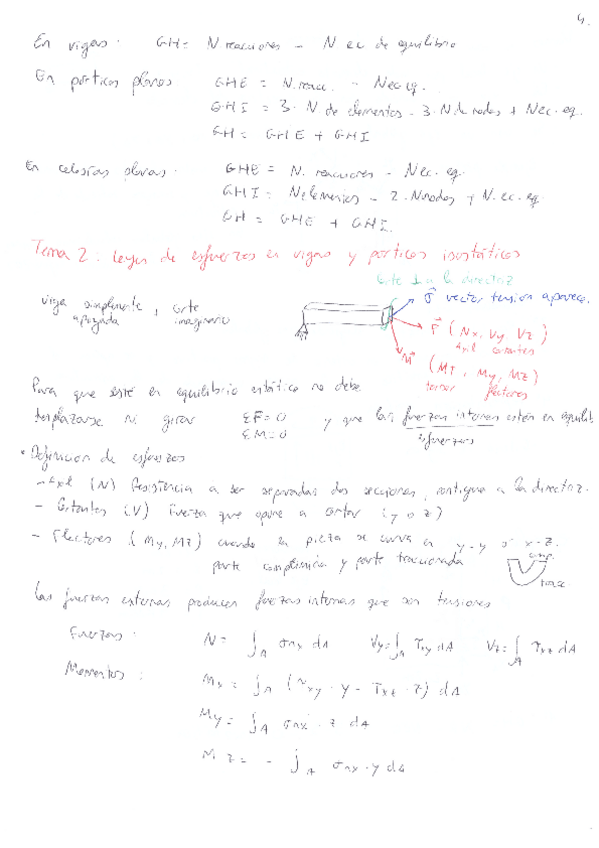 4.
En vigas. GH = N. reacciones - N ec de equilibrio
En pórticos planos GHE = N. reacc. - N ec. eq.
GHI = 3. N. de elementos - 3. N de nodos + N ec. eq.
GH = GHE + GHI
En celosías planas. GHE = N. reacciones - N ec. eq.
GHI = N elementos - 2. N nodos + N. ec. eq
GH = GHE + GHI.
Tema 2: Leyes de esfuerzos en vigas y pórticos isostáticos
corte ⊥ a la directriz
viga simplemente apoyada, corte imaginario
σ⃗ vector tensión aparece.
F⃗ (Nx, Vy, Vz)
axil cortantes
M⃗ (MT, My, Mz)
torsor flectores
Para que esté en equilibrio estático no debe
desplazarse ni girar ΣF=0 ΣM=0 y que las fuerzas internas estén en equilib
esfuerzos
* Definición de esfuerzos
- Axil (N) Resistencia a ser separadas dos secciones, contigua a la directriz.
- Cortantes (V) Fuerza que opone a cortar (y o z)
- Flectores (My, Mz) cuando la pieza se curva en x-y o x-z.
parte comprimida y parte traccionada
comp. tracc
Las fuerzas externas producen fuerzas internas que son tensiones
Fuerzas: N = ∫A σnx dA Vy = ∫A Txy dA Vz = ∫A Txz dA
Momentos: Mx = ∫A (Txy · y - Txz · z) dA
My = ∫A σnx · z dA
Mz = - ∫A σnx · y dA